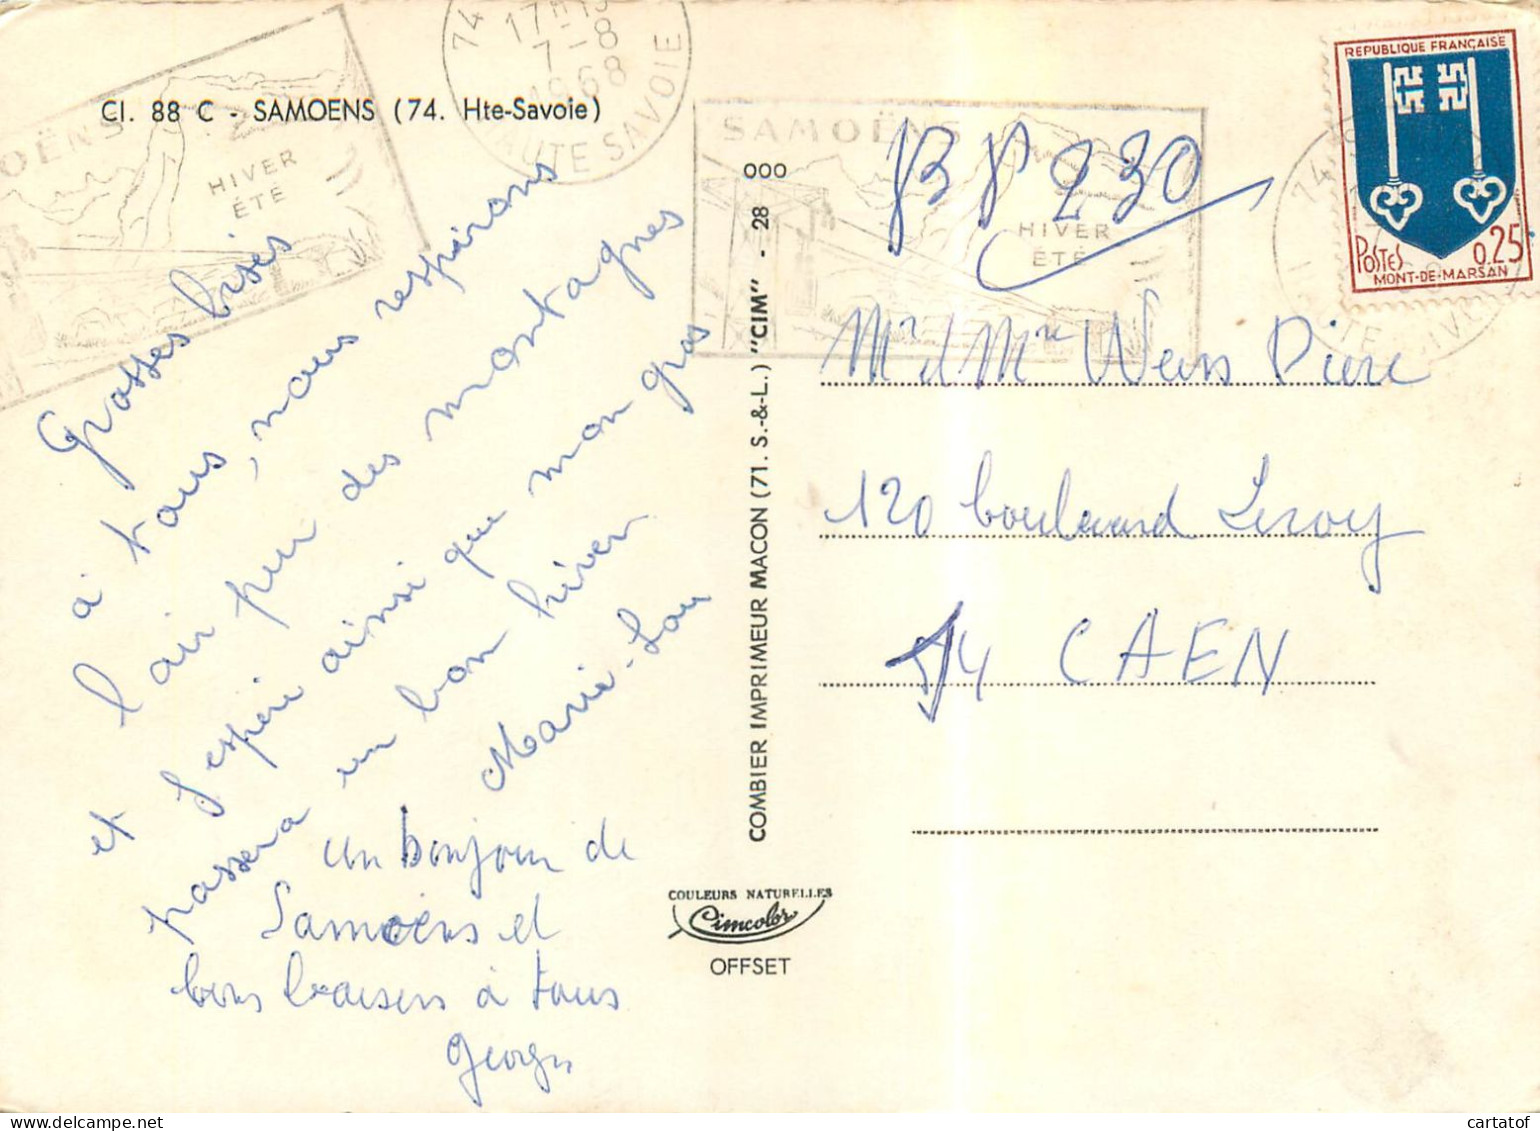 Cl. 88 C - SAMOENS (74. Hte-Savoie)
OËNS
HIVER
ÉTÉ
74
17H15
7-8
1968
HAUTE SAVOIE
SAMOËNS
HIVER
ÉTÉ
74
REPUBLIQUE FRANÇAISE
POSTES
0.25
MONT-DE-MARSAN
BP 230
Grosses bises
à tous, nous respirons
l'air pur des montagnes
et j'espère ainsi que mon gros
passera un bon hiver
Marie-Lou
un bonjour de
Samoëns et
bons baisers à tous
Georges
COMBIER IMPRIMEUR MACON (71. S.-&-L.) "CIM" - 28 000
COULEURS NATURELLES
Cimcolor
OFFSET
Mr et Mme Weiss Pierre
120 boulevard Leroy
14 CAEN
cartatof